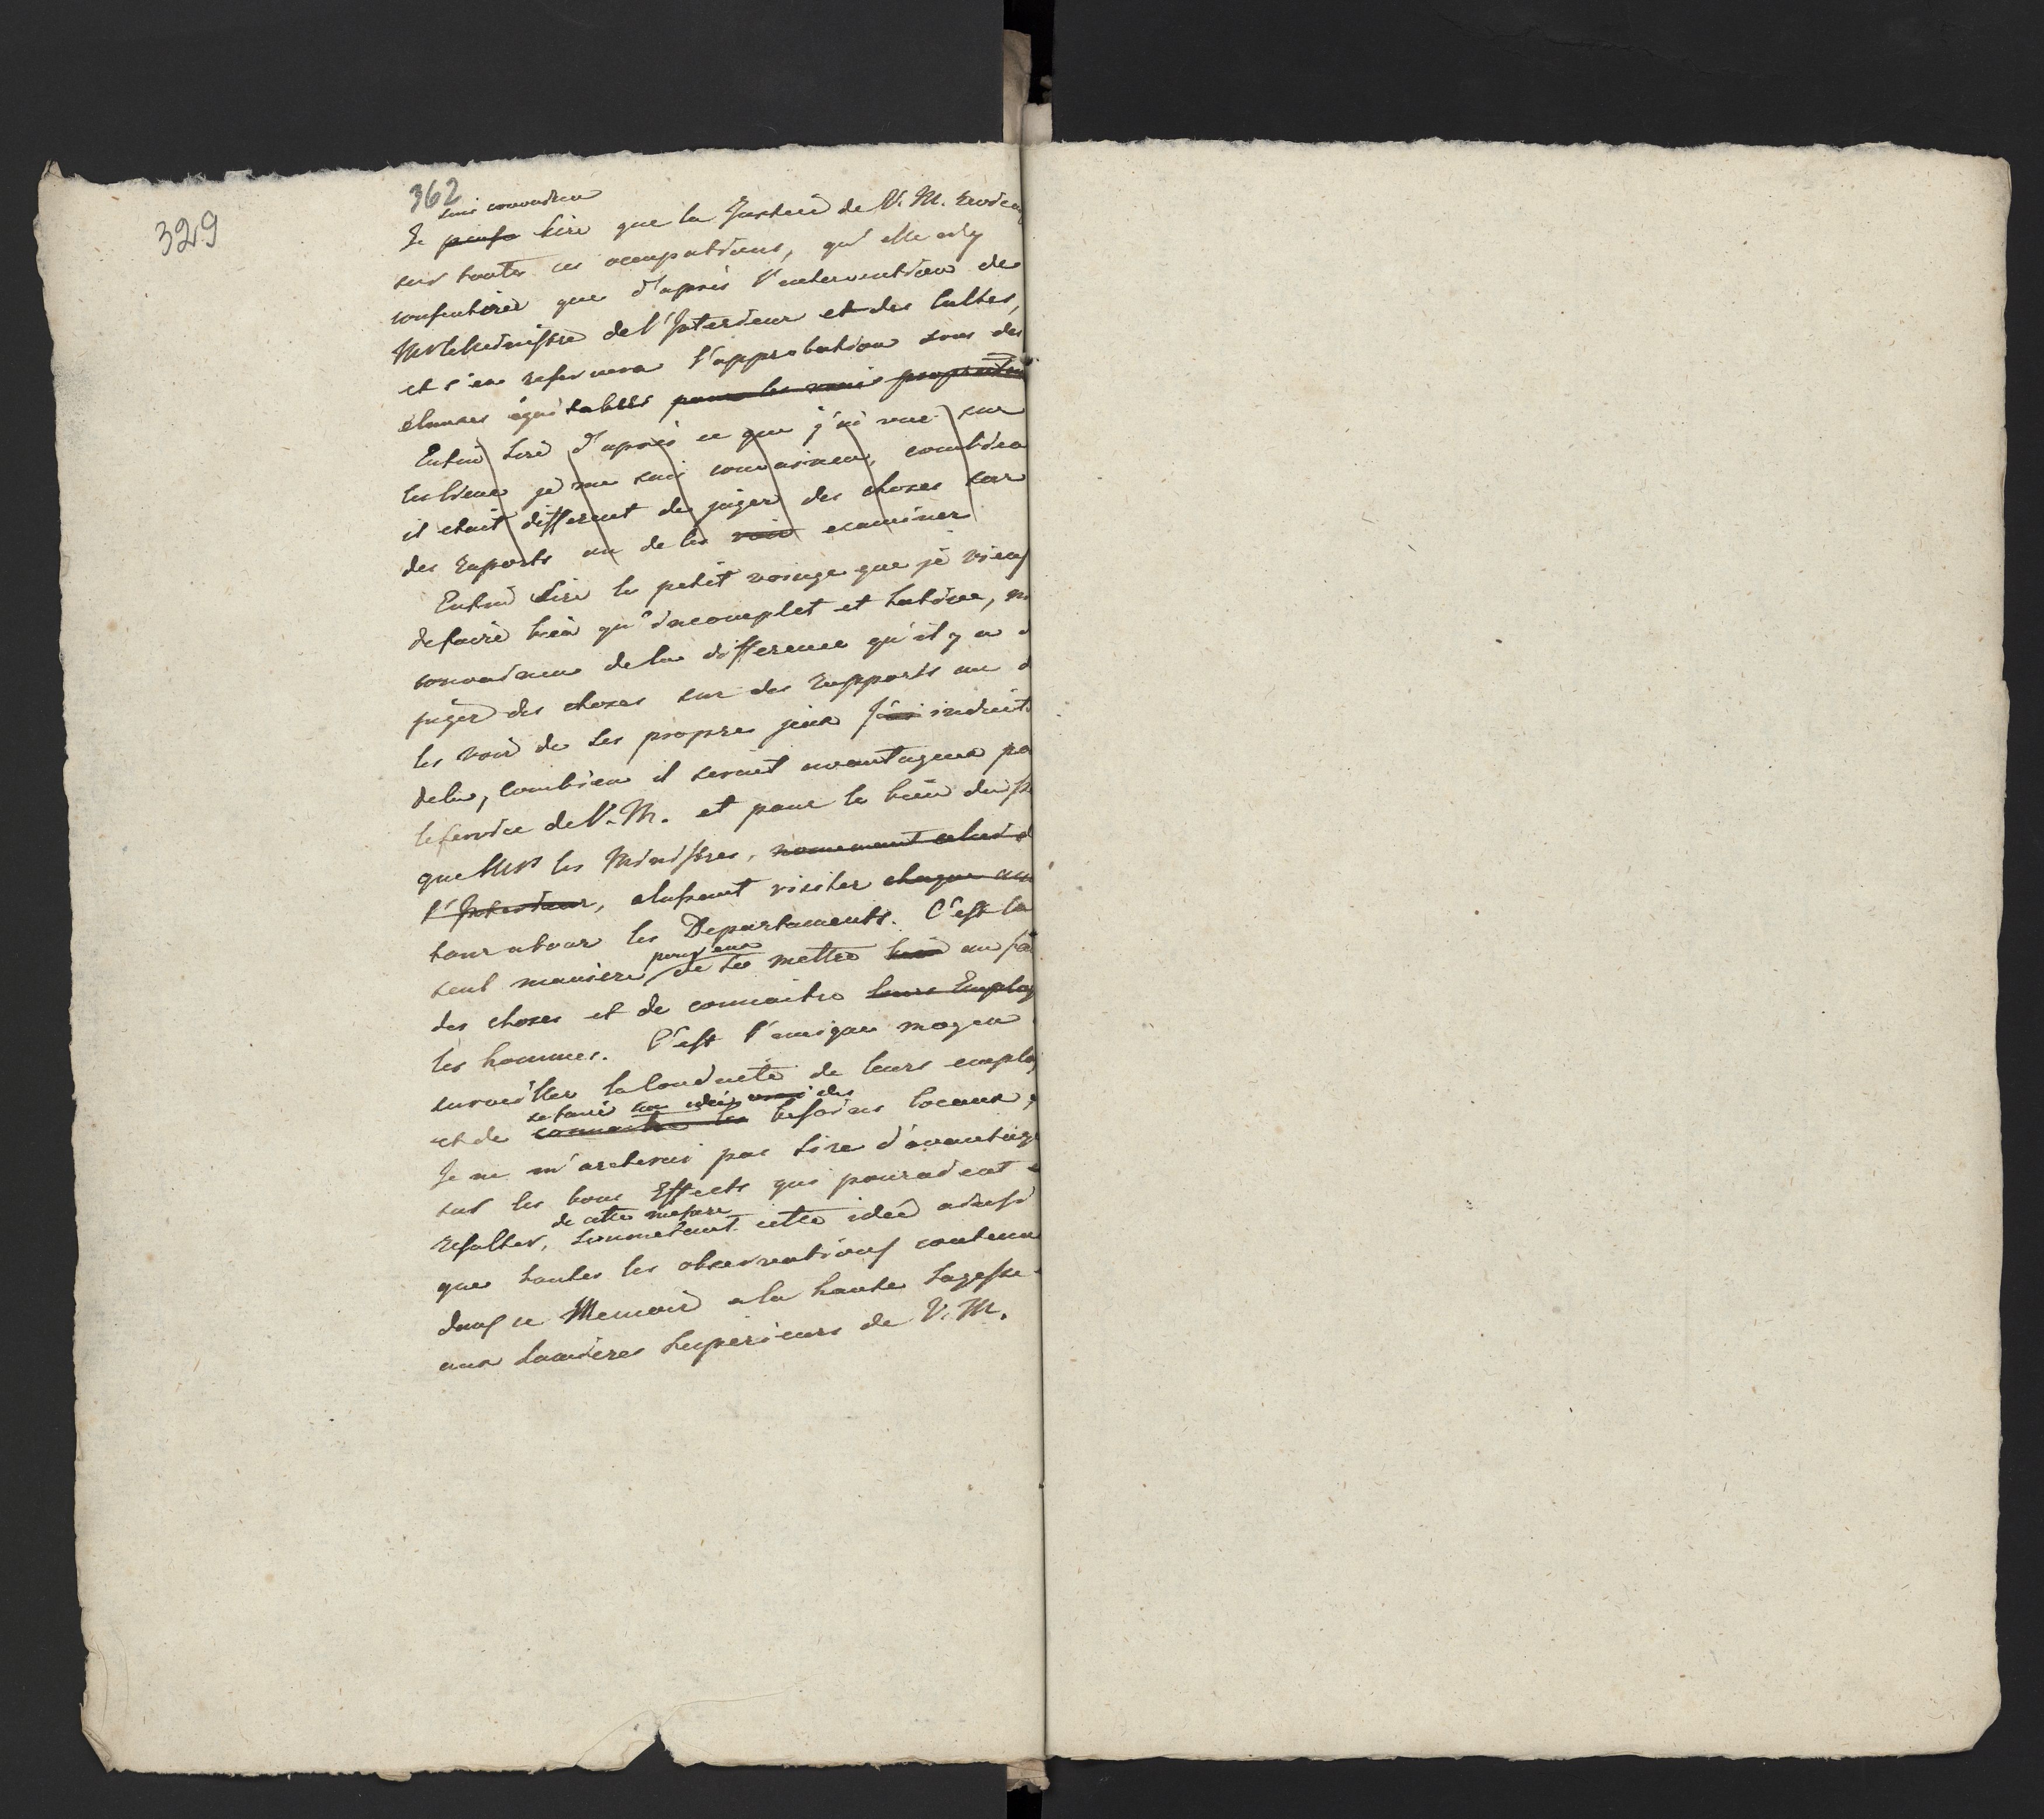 362
329
suis convaincu
Je pense Sire que la Justice de V. M.
sur toutes ces occupations, qu'elle n'y
consentirà que d'après l'intervention de
Mr le Ministre de l'Interieur et des Cultes,
et s'en reservera l'approbation sous des
clauses équitables pour les vrais proprietai
Enfin Sire d'après ce que j'ai vue sur
les lieux je me suis convaincu, combien
il etait different de juger des choses sur
des raports ou de les voir examiner
Enfin Sire le petit voiage que je viens
de faire bien qu'incomplet et hative, m
convaincu de la difference qu'il y a d
juger des choses sur des rapports ou d
les voir de ses propres yeux J'ai induit
dela, combien il serait avantageux po
le service de V. M. et pour le bien de
que Mrs les Ministres, nomement celui d
l'Interieur, alassent visiter chaque an
tour atour les Departaments. C'est la
seul maniere pour eux de se mettre bien au fai
des choses et de connaitre leurs Employ
les hommes. C'est l'unique moyen
surveiller la conduite de leurs employ
se faire une idée vrai des
et de connaitre les besoins locaux,
Je ne m'areterai pas Sire d'avantage
sur les bons Effects qui pouraient e
de cette mesure
resulter, soumetant cette idée ainsi
que toutes les observations contenu
dans ce Memoire a la haute Sagesse
aux Lumieres Superieurs de V. M.